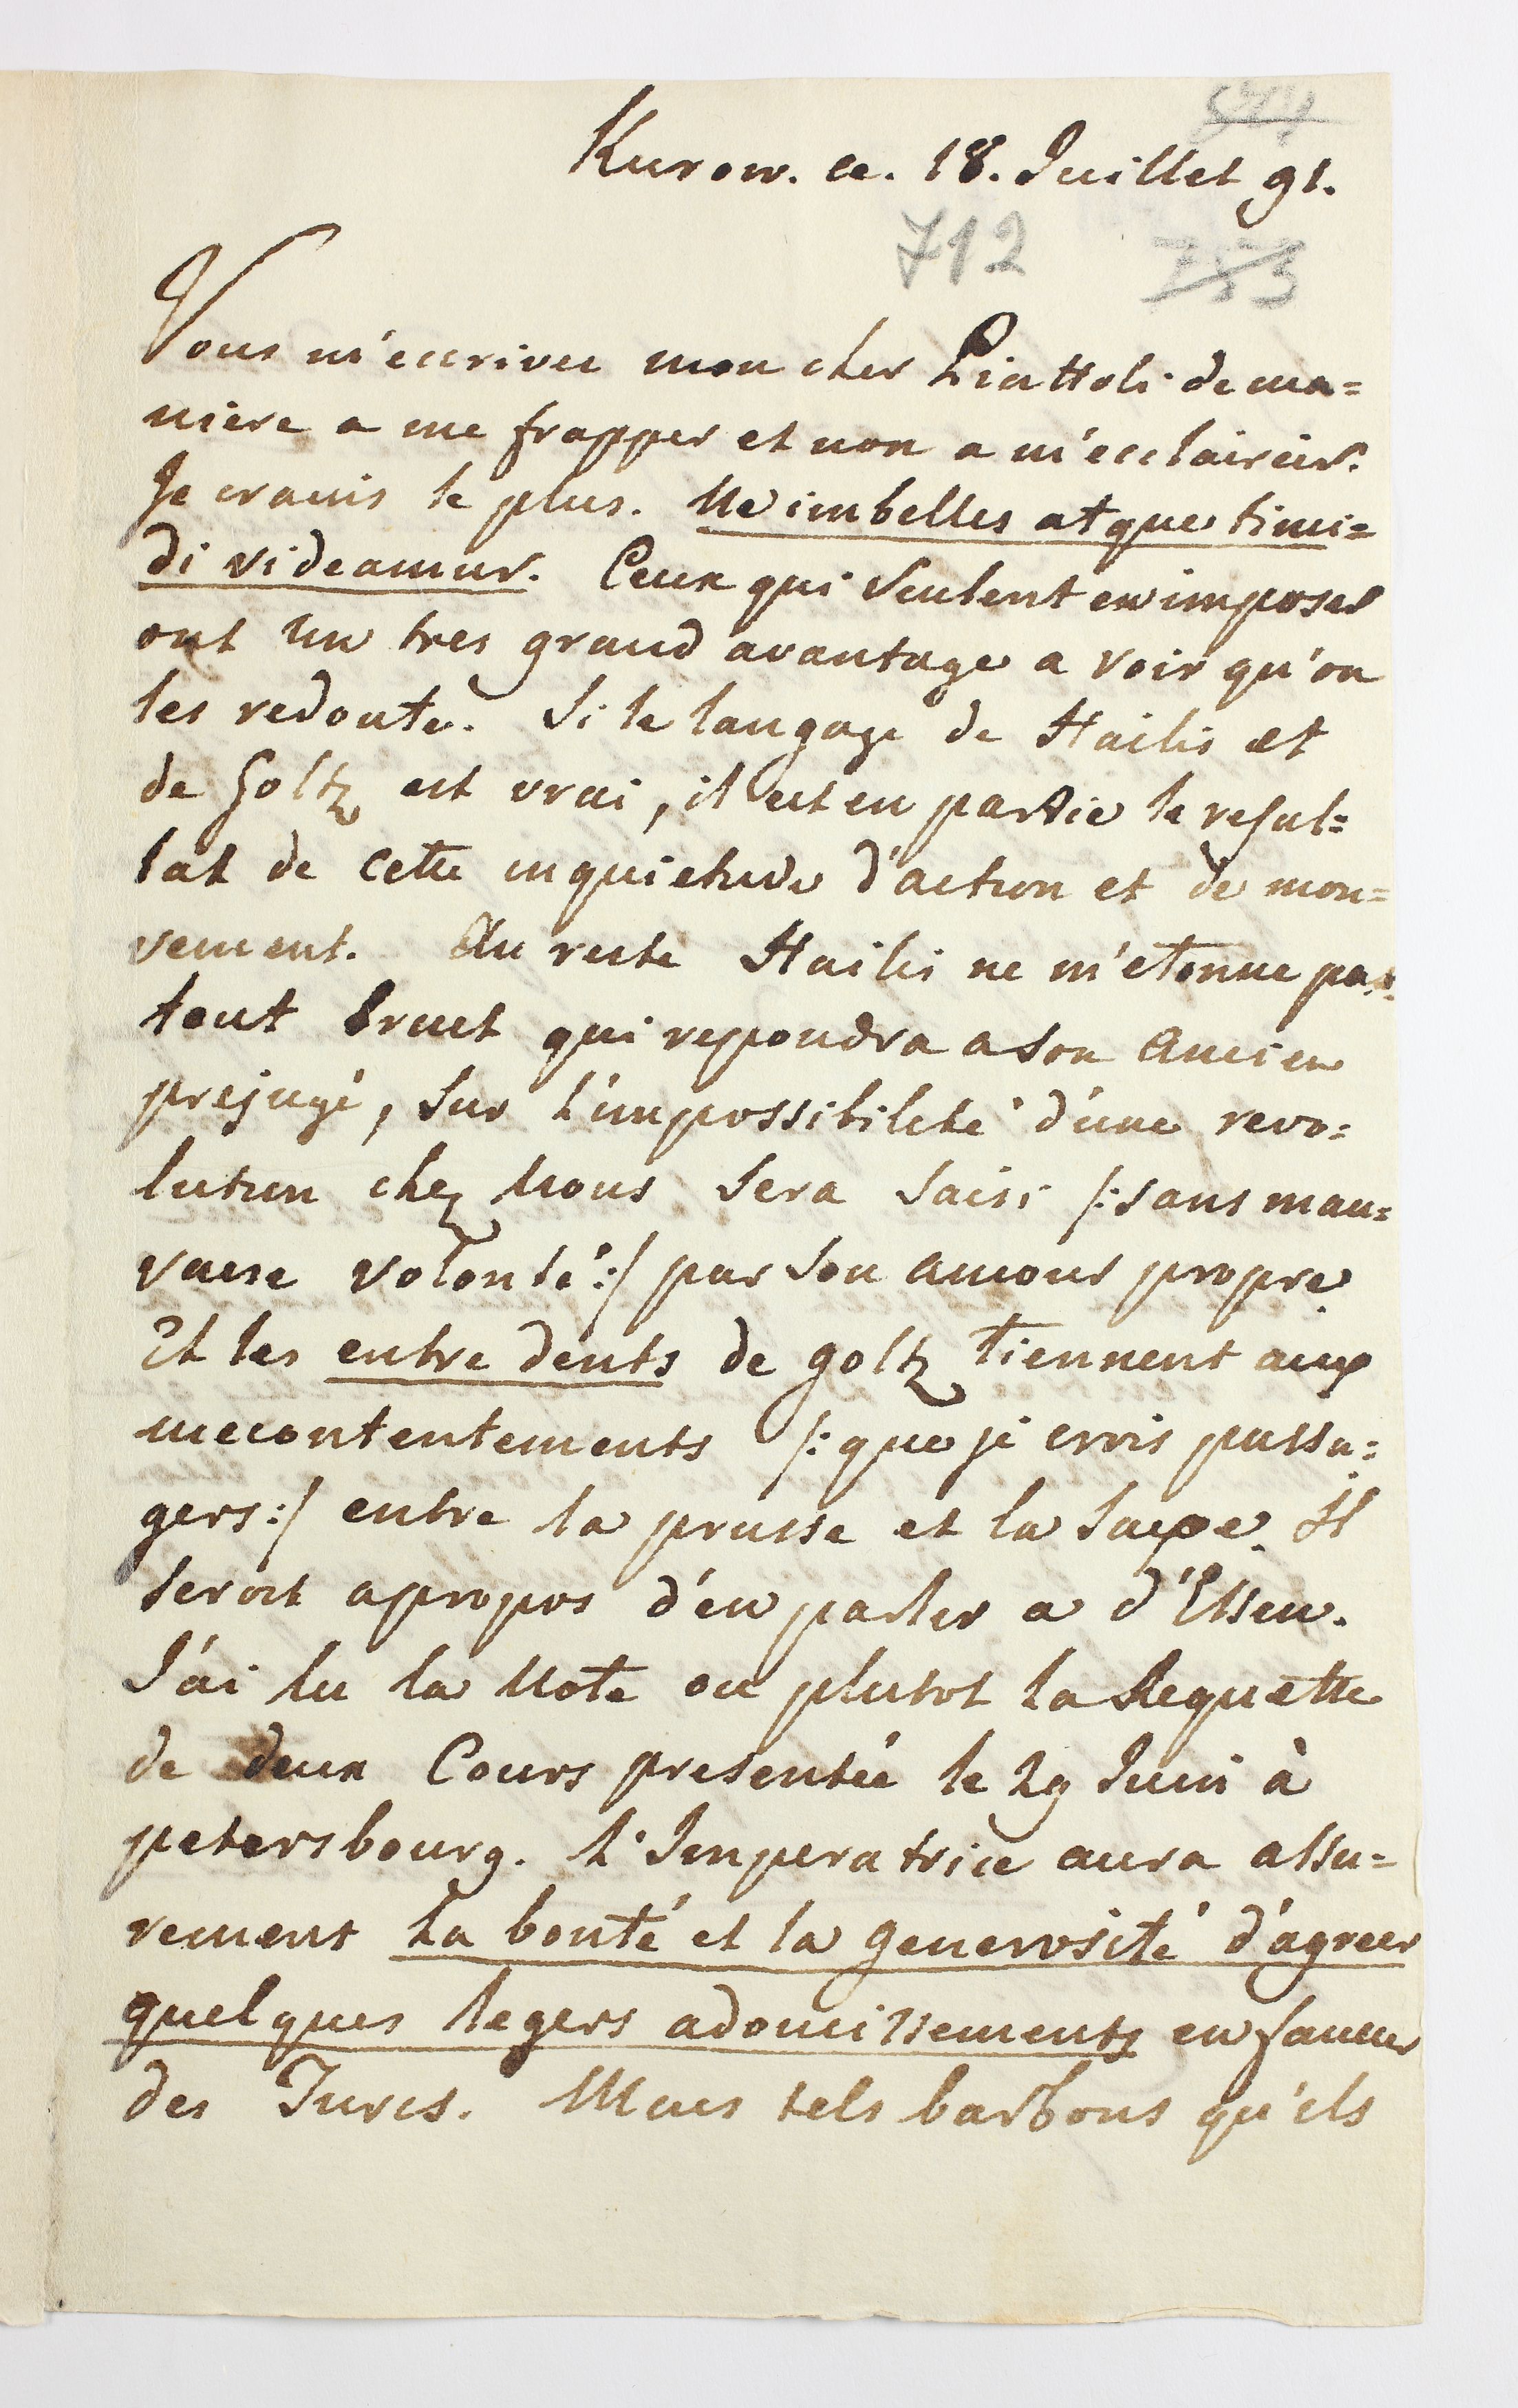 Kurow. ce. 18. Juillet 91.
712
Vous m'ecrivez mon cher Piattoli de ma=
niere a me frapper et non a m'ecclaircir.
Je crains le plus. Ne imbelles atque timi=
di videamur. Ceux qui veulent en imposer
ont un tres grand avantage a voir qu'on
les redoute. Si le langage de Hailis et
de Goltz est vrai, il est en partie le resul=
tat de cette inquietude d'action et de mou=
vement. Au reste Hailis ne m'etonne pas.
tout bruet qui repondra a son ancien
prejugé, sur l'impossibileté d'une revo=
lution chez nous sera saisi /: sans mau=
vaise volonté :/ par son amour propre
Et les entre dents de goltz tiennent aux
mecontentements /: que je crois passa=
gers :/ entre la prusse et la Saxe. Il
seroit apropos d'en parler a d'Essen.
J'ai lu la Note ou plutot la Requette
de deux Cours presentée le 29 Juin à
petersbourg. L'Imperatrice aura assu=
rement la bonté et la generosité d'agreer
quelques legers adoucissements en faveur
des Turcs. Mais tels barbons qu'ils